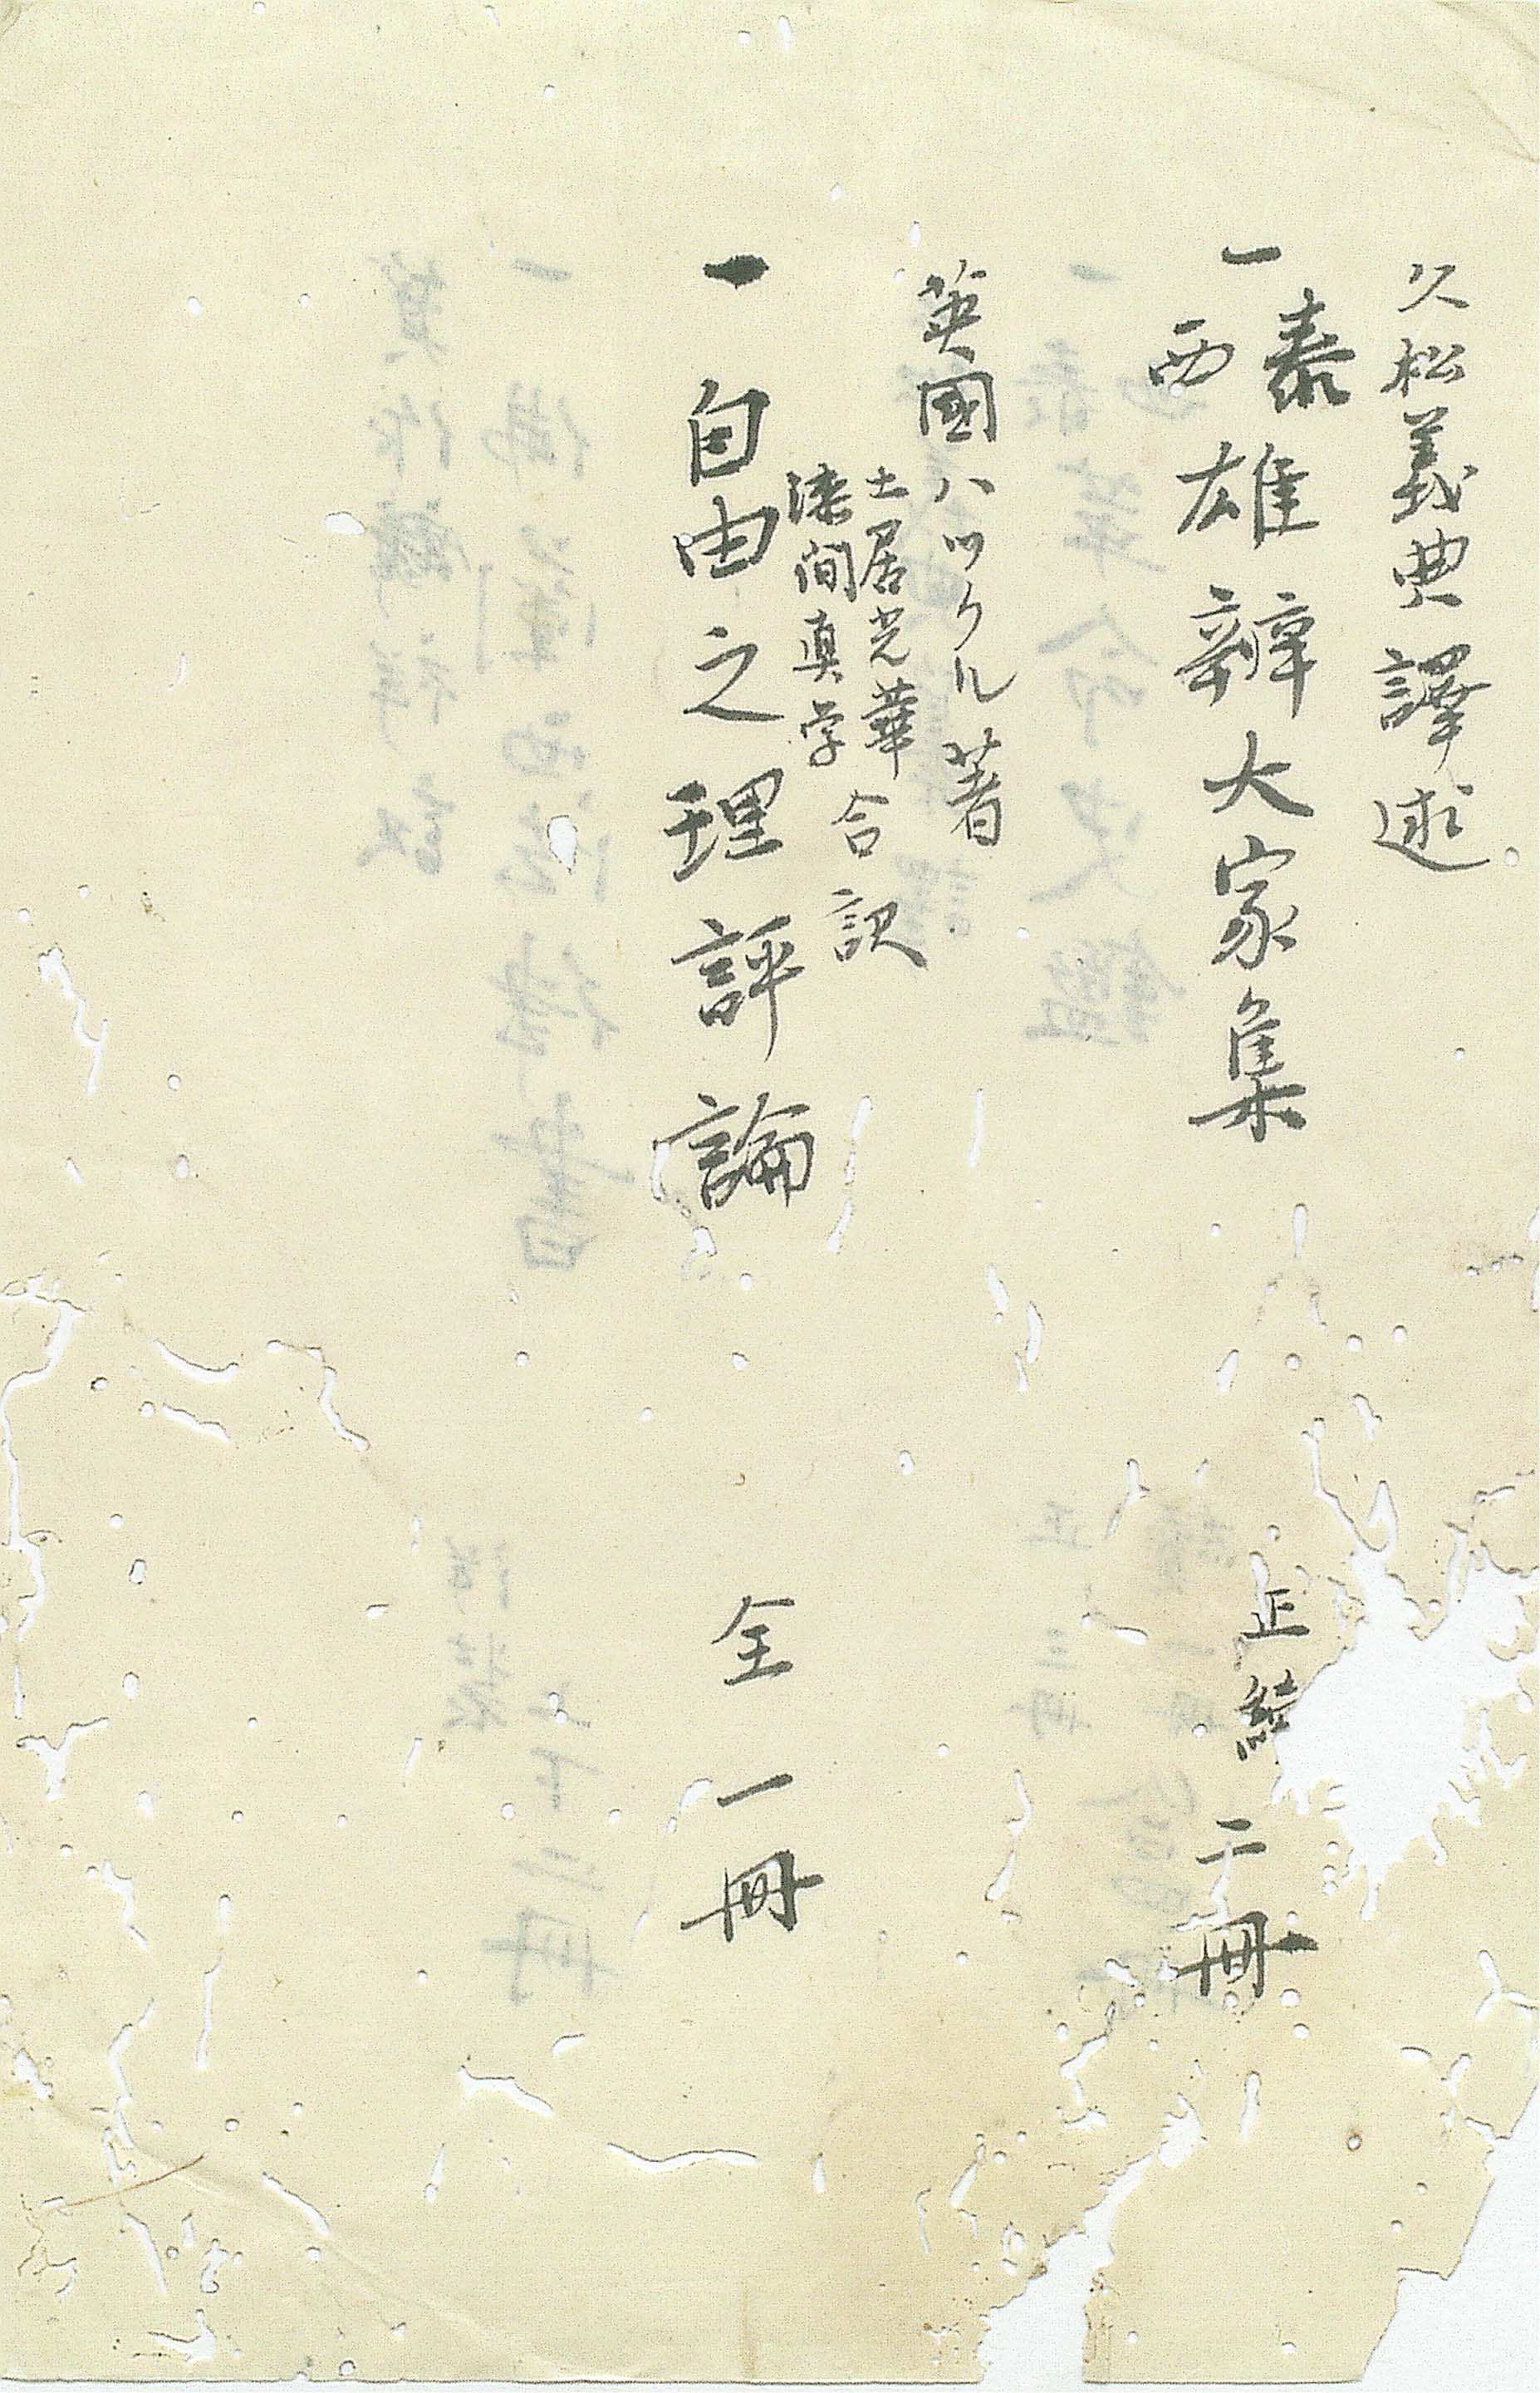 久松義典譯述
一泰西雄辯大家集
正続 二冊
英國ハックル著
土居光華
漆間真学
合訳
一自由之理評論
全一冊